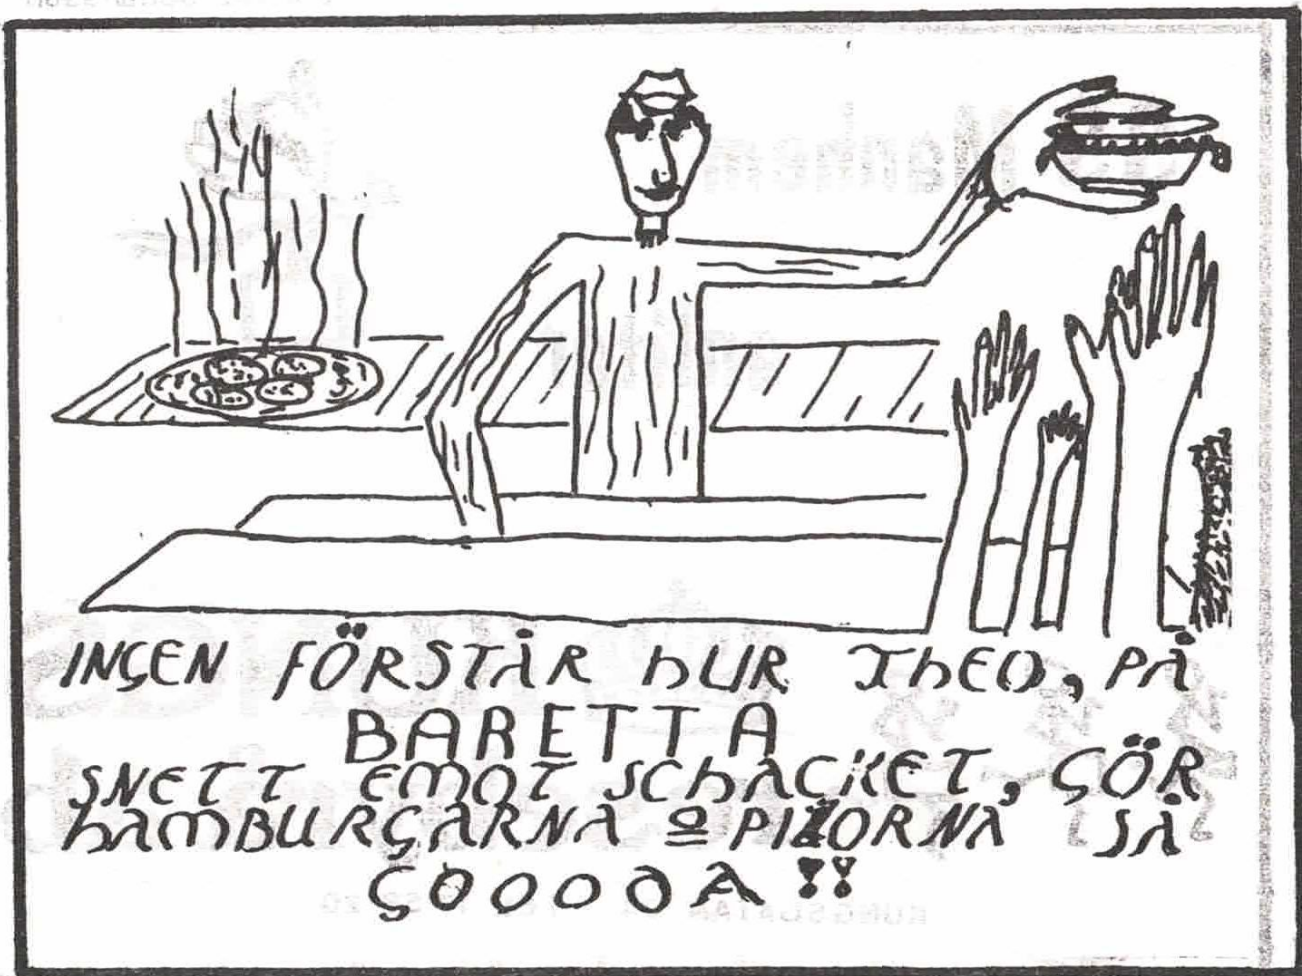 INGEN FÖRSTÅR HUR THEO, PÅ
BARETTA
SNETT EMOT SCHACKET, GÖR
HAMBURGARNA O PIZORNA SÅ
GOOODA!!